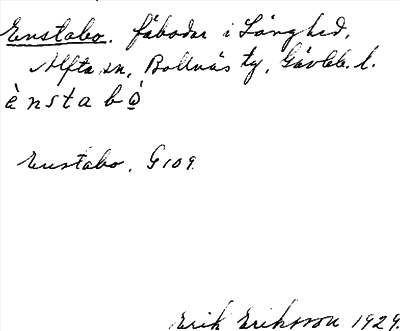 Enstabo. fäbodar i Långhed,
Alfta sn, Bollnäs tg, Gävleb. l.
ènstabò̠
Enstabo, G109.
Erik Eriksson 1929.